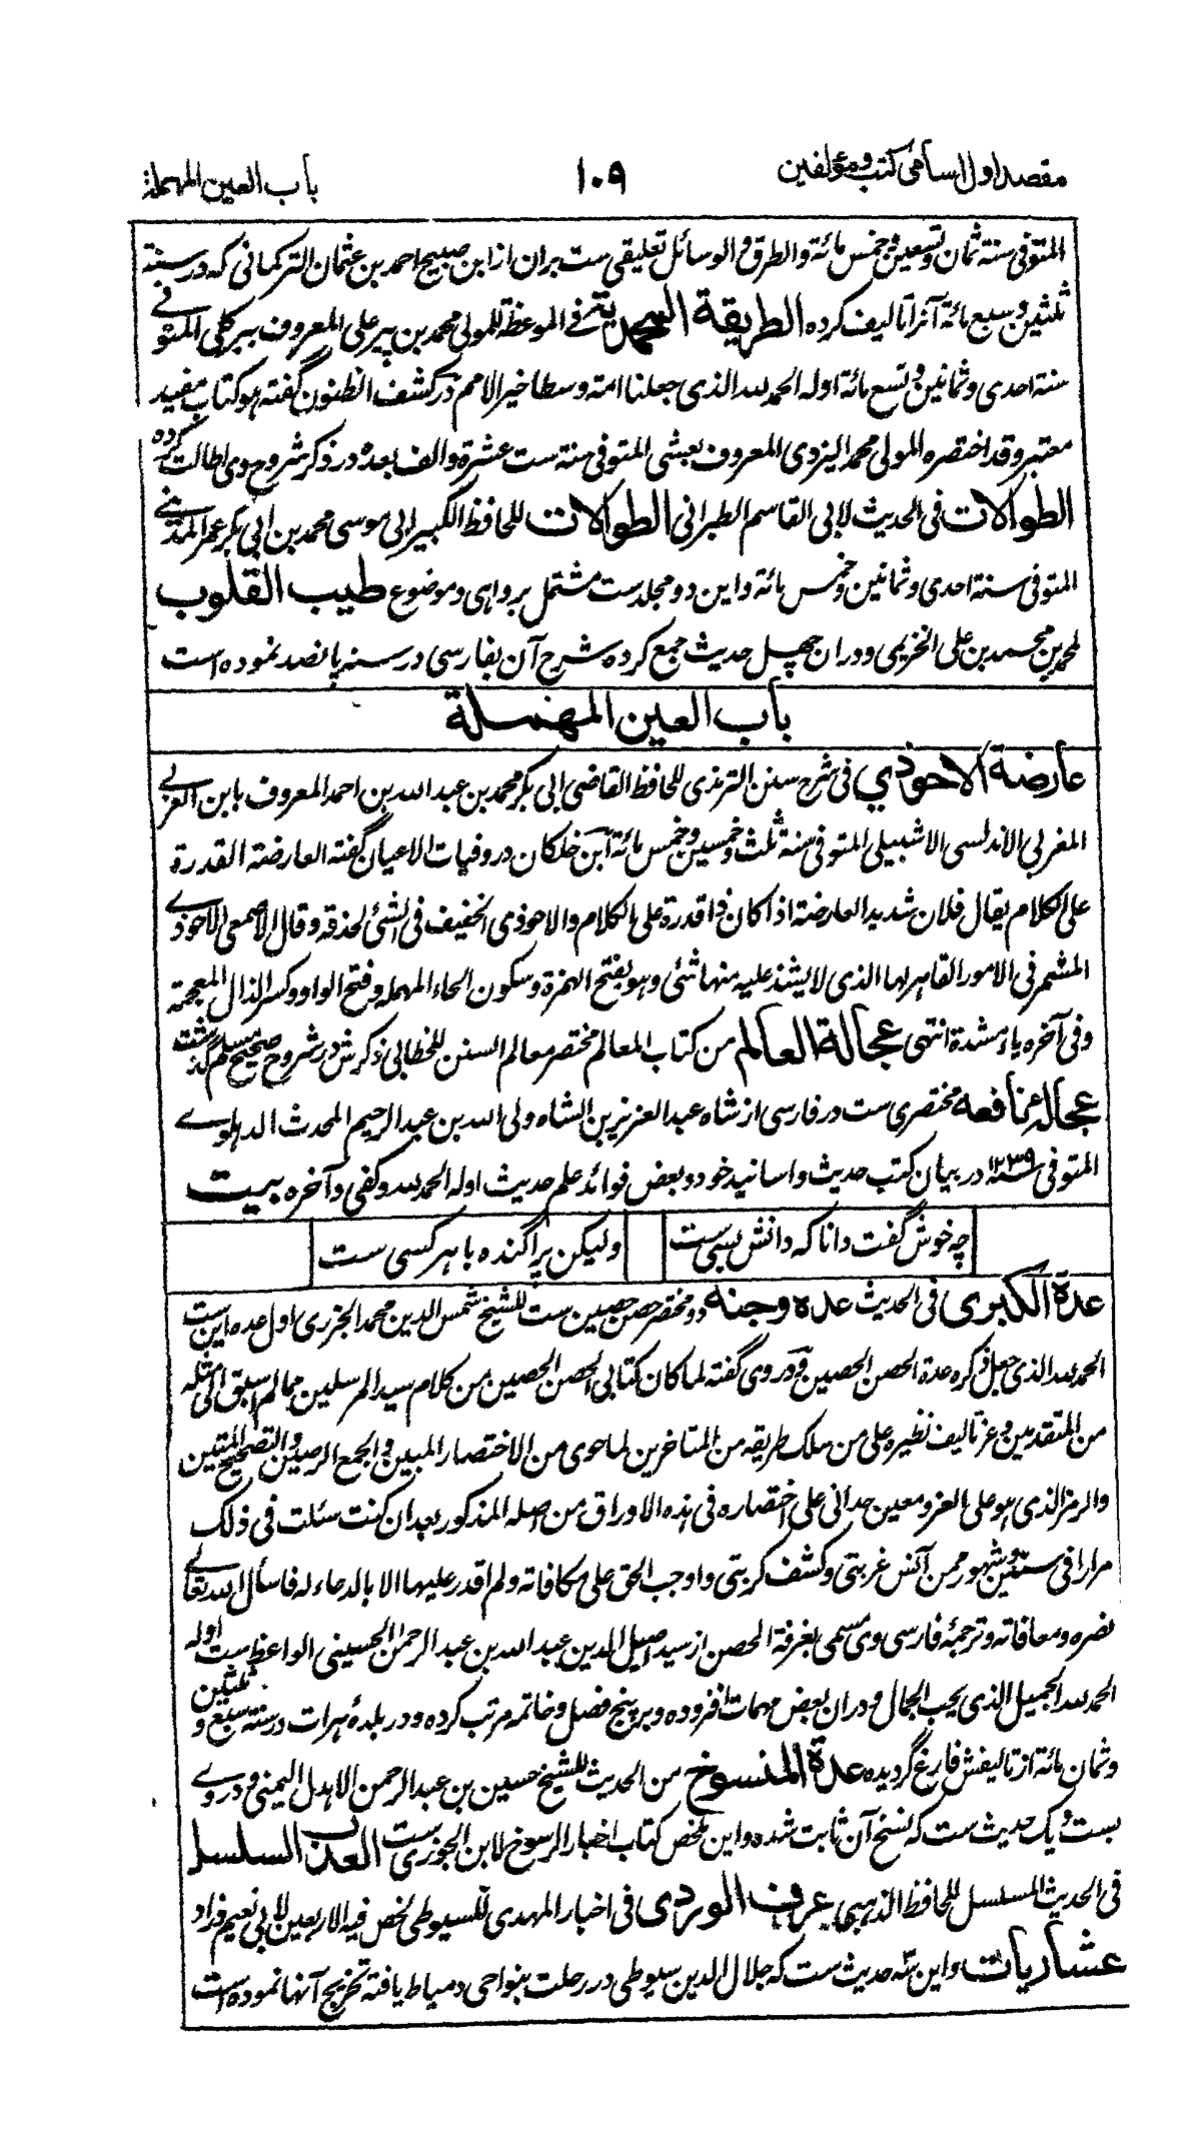 مقصد اول اسامی کتب و مؤلفین
۱۰۹
باب العین المهملة
المتوفی سنة ثمان و تسعین و خمس مائة والطرق والوسائل تعلیقی ست بران از ابن صبیح احمد بن عثمان الترکمانی که در سنة
ثلثین و سبع مائة آنرا تالیف کرده الطریقة المحمدیة فی الموعظة للمولی محمد بن پیر علی المعروف ببرکلی المتوفے
سنة احدی و ثمانین و تسع مائة اوله الحمد لله الذی جعلنا امة وسطا خیر الامم در کشف الظنون گفته هو کتاب مفید
معتبر و قد اختصره المولی محمد الیزدی المعروف بعشی المتوفی سنة ست عشرة و الف بعده در ذکر شروح وی اطالت کرده
الطوالات فی الحدیث لابی القاسم الطبرانی الطوالات للحافظ الکبیر ابی موسی محمد بن ابی بکر عمر المدینے
المتوفی سنة احدی و ثمانین و خمس مائة و این دو مجلد ست مشتمل بر واهی و موضوع طیب القلوب
لمحمد بن محمد بن علی الخزیمی و دران چهل حدیث جمع کرده شرح آن بفارسی در سنه پانصد نموده است
باب العین المهملة
عارضة الاحوذي فی شرح سنن الترمذی للحافظ القاضی ابی بکر محمد بن عبد الله بن احمد المعروف بابن العربے
المغربی الاندلسی الاشبیلی المتوفی سنة ثلث و خمسین و خمس مائة ابن خلکان در وفیات الاعیان گفته العارضة القدرة
علی الکلام یقال فلان شدید العارضة اذا کان ذا قدرة علی الکلام والاحوذی الخفیف فی الشئ لحذقه و قال الاصمعی الاحوذے
المشمر فی الامور القاهر لها الذی لا یشذ علیه منها شئی و هو بفتح الهمزة و سکون الحاء المهملة و فتح الواو و کسر الذال المعجمة
و فی آخره یاء مشدة انتهی عجالة العالم من کتاب المعالم مختصر معالم السنن للخطابی ذکرش در شروح صحیح مسلم گذشت
عجاله نافعه مختصری ست در فارسی از شاه عبد العزیز بن الشاه ولی الله بن عبد الرحیم المحدث الدهلوے
المتوفی ۱۲۳۹ در بیان کتب حدیث و اسانید خود و بعض فوائد علم حدیث اوله الحمد لله و کفی و آخره بیت
چه خوش گفت دانا که دانش بسی ست
ولیکن پراگنده با هر کسی ست
عدة الکبری فی الحدیث عده و جنه دو مختصر حصن حصین ست للشیخ شمس الدین محمد الجزری اول عده این ست
الحمد لله الذی جعل ذکره عدة الحصن الحصین و در وی گفته لما کان کتابی الحصن الحصین من کلام سید المرسلین مما لم اسبق الی مثله
من المتقدمین و عز تالیف نظیره علی من سلک طریقه من المتاخرین لما حوی من الاختصار المبین و الجمع الرصین و التصحیح المتین
والرمز الذی هو علی العزو معین حدانی علی اختصاره فی هذه الاوراق من اصله المذکور بعد ان کنت سئلت فی ذلک
مرارا فی سنین و شهور ممن آنس غربتی و کشف کربتی و اوجب الحق علی مکافاته و لم اقدر علیها الا بالدعاء له فاسأل الله تعالے
نصره و معافاته و ترجمهٔ فارسی وی مسمی بغرفة الحصن از سید اصیل الدین عبد الله بن عبد الرحمن الحسینی الواعظ ست اوله
الحمد لله الجمیل الذی یحب الجمال و دران بعض مهمات افزوده و بر پنج فصل و خاتمه مرتب کرده و در بلدهٔ هرات در سنه سبع و ثلثین
و ثمان مائة از تالیفش فارغ گردیده عدة المنسوخ من الحدیث للشیخ حسین بن عبد الرحمن الاهدل الیمنی و دروے
بست و یک حدیث ست که نسخ آن ثابت شده و این ملخص کتاب اخبار الرسوخ لابن الجوزی ست العذب السلسل
فی الحدیث المسلسل للحافظ الذهبی عرف الوردی فی اخبار المهدی للسیوطی لخص فیه الاربعین لابی نعیم و زاد
عشاریات و این سه حدیث ست که جلال الدین سیوطی در رحلت بنواحی دمیاط یافته تخریج آنها نموده است